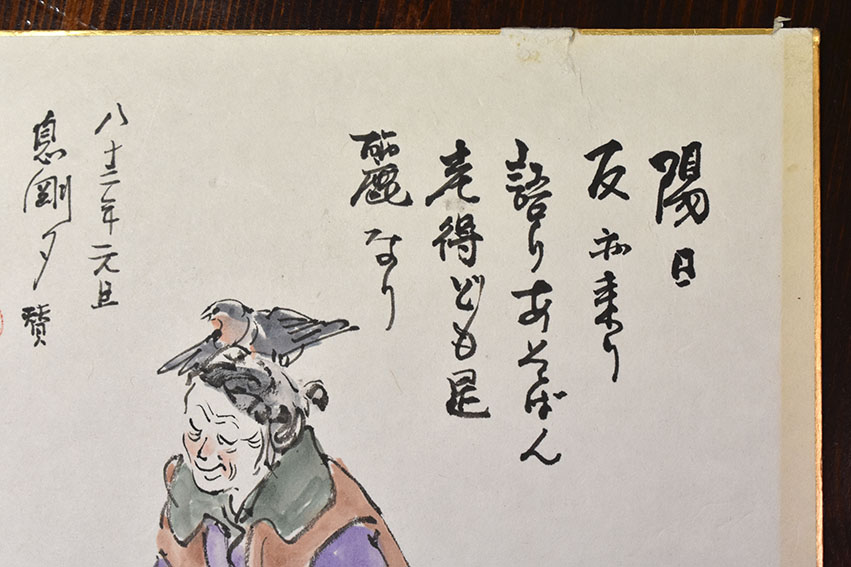 陽日
反お来り
語りあそばん
老得ども是
麗なり
八十二年元旦
息剛夕賛